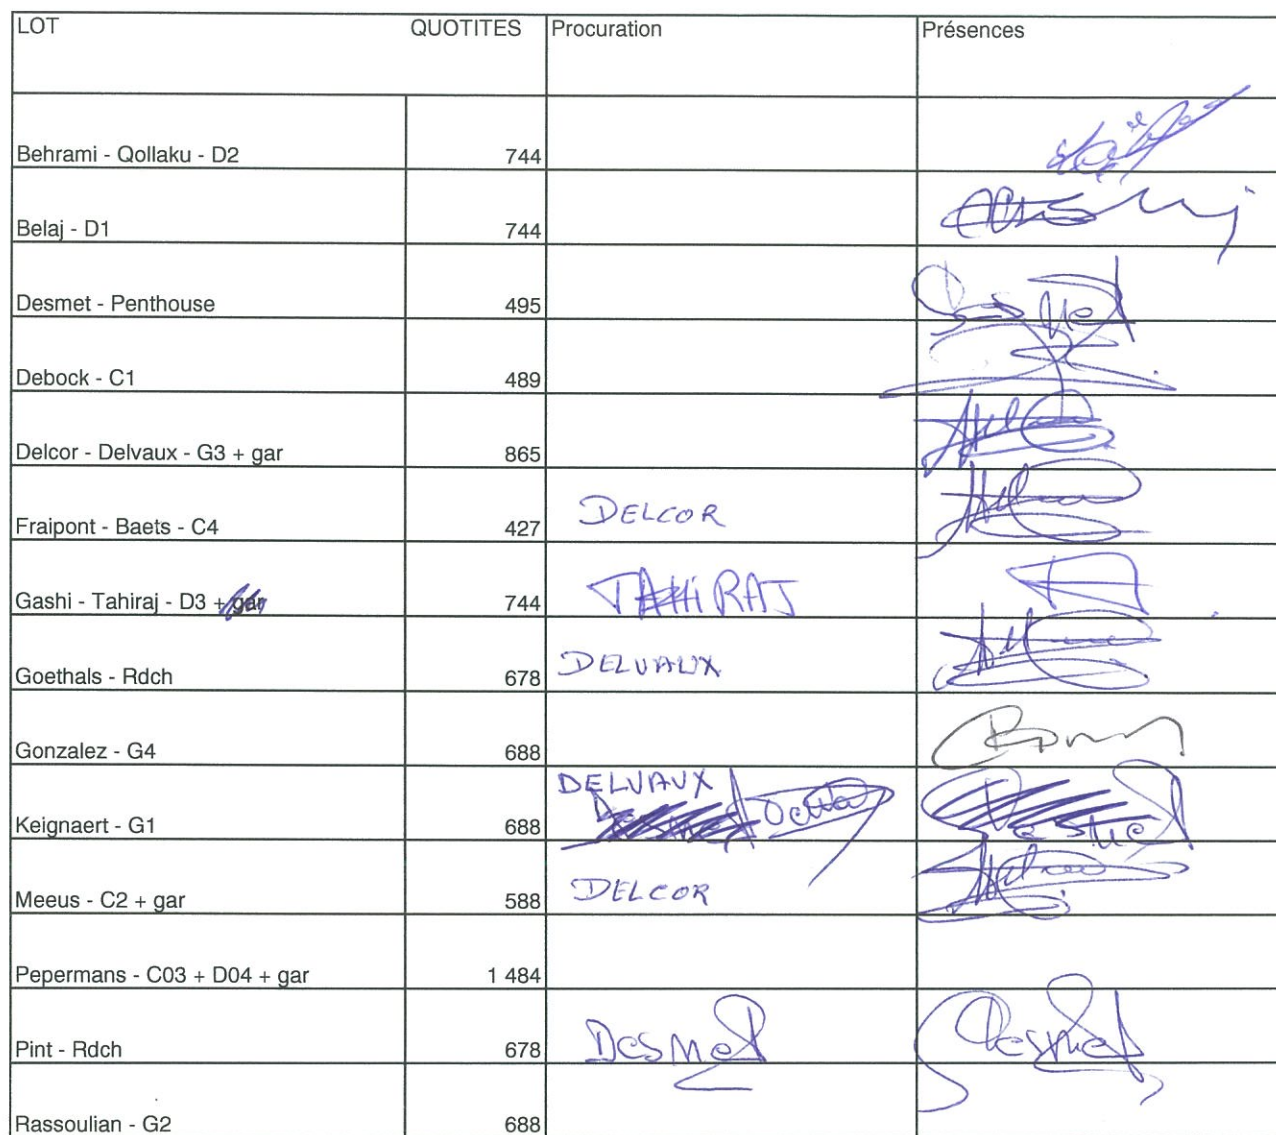 LOT QUOTITES Procuration Présences
Behrami - Qollaku - D2 744
Belaj - D1 744
Desmet - Penthouse 495 Desmet
Debock - C1 489
Delcor - Delvaux - G3 + gar 865
Fraipont - Baets - C4 427 DELCOR
Gashi - Tahiraj - D3 + gar 744 TAHIRAJ
Goethals - Rdch 678 DELVAUX
Gonzalez - G4 688
DELVAUX
Keignaert - G1 688 Desmet
Meeus - C2 + gar 588 DELCOR
Pepermans - C03 + D04 + gar 1 484
Pint - Rdch 678 Desmet Desmet
Rassoulian - G2 688